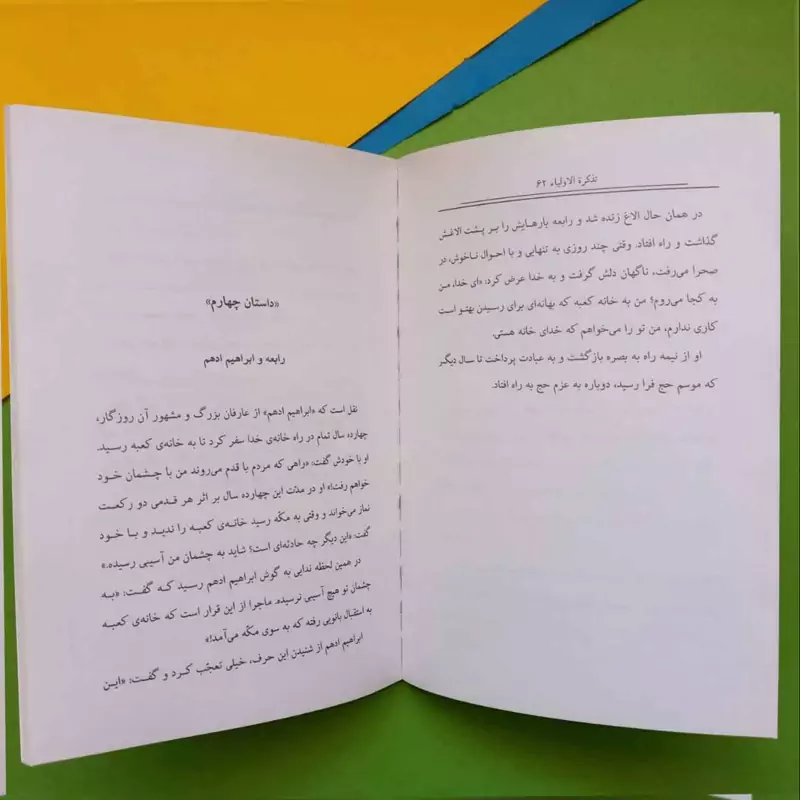 تذکرة الاولیاء ۶۲
در همان حال الاغ زنده شد و رابعه بارهایش را بر پشت الاغش
گذاشت و راه افتاد. وقتی چند روزی به تنهایی و با احوال ناخوش، در
صحرا می‌رفت، ناگهان دلش گرفت و به خدا عرض کرد: «ای خدا، من
به کجا می‌روم؟ من به خانه کعبه که بهانه‌ای برای رسیدن بهتو است
کاری ندارم، من تو را می‌خواهم که خدای خانه هستی.
او از نیمه راه به بصره بازگشت و به عبادت پرداخت تا سال دیگر
که موسم حج فرا رسید، دوباره به عزم حج به راه افتاد.
«داستان چهارم»
رابعه و ابراهیم ادهم
نقل است که «ابراهیم ادهم» از عارفان بزرگ و مشهور آن روزگار،
چهارده سال تمام در راه خانه‌ی خدا سفر کرد تا به خانه‌ی کعبه رسید.
او با خودش گفت: «راهی که مردم با قدم می‌روند من با چشمان خود
خواهم رفت!» او در مدّت این چهارده سال بر اثر هر قدمی دو رکعت
نماز می‌خواند و وقتی به مکّه رسید خانه‌ی کعبه را ندید و با خود
گفت: «این دیگر چه حادثه‌ای است؟ شاید به چشمان من آسیبی رسیده.»
در همین لحظه ندایی به گوش ابراهیم ادهم رسید که گفت: «به
چشمان تو هیچ آسیبی نرسیده. ماجرا از این قرار است که خانه‌ی کعبه
به استقبال بانویی رفته که به سوی مکّه می‌آمد!»
ابراهیم ادهم از شنیدن این حرف، خیلی تعجّب کرد و گفت: «این